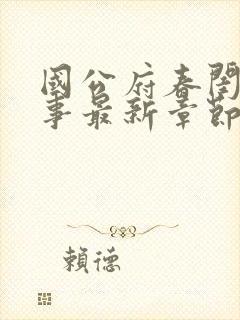 國公府春閨
事最新章節
賴德